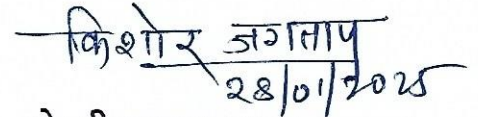 किशोर जगताप
28/01/2025